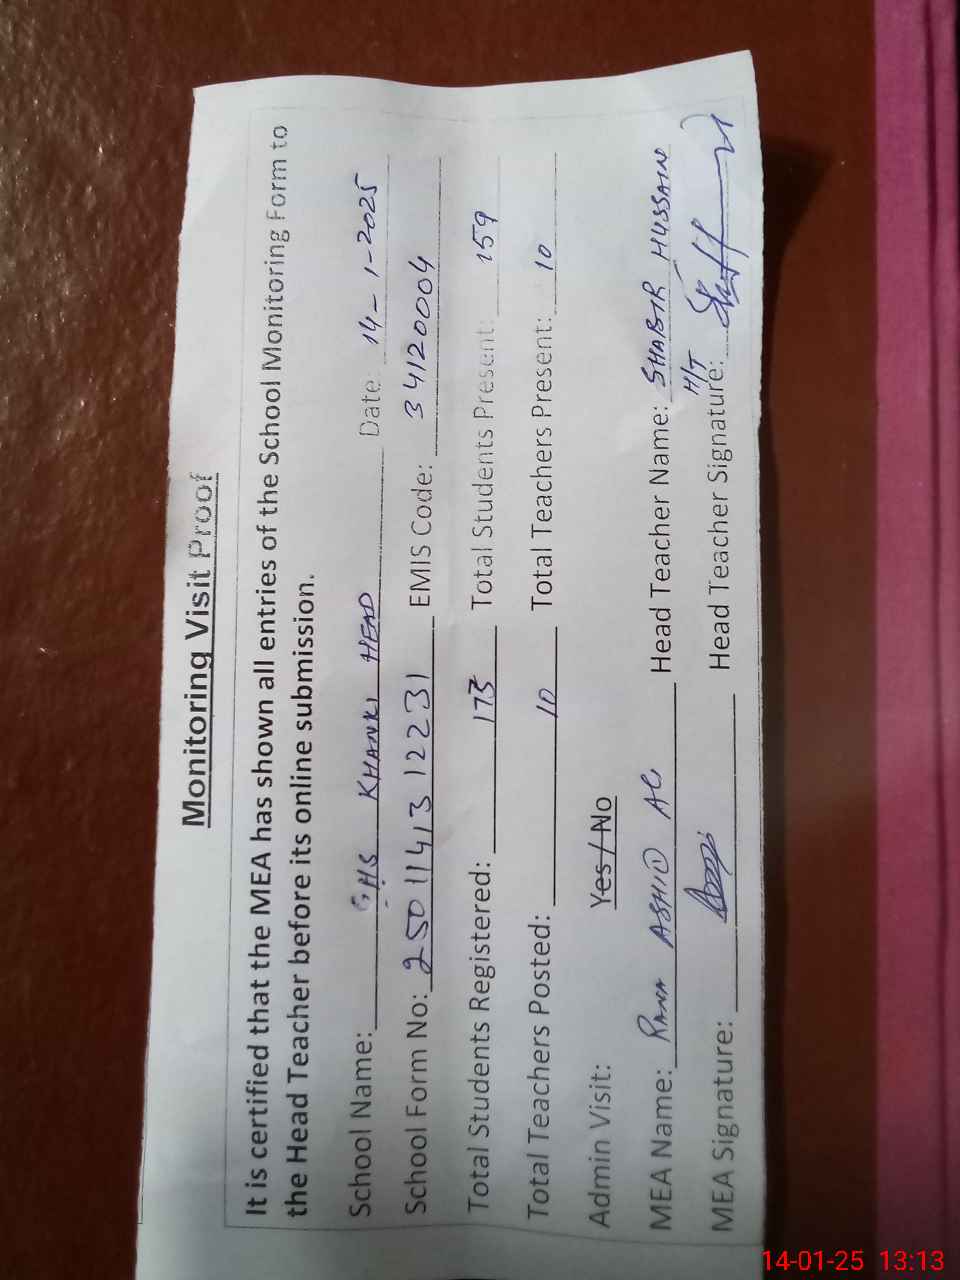 Monitoring Visit Proof
It is certified that the MEA has shown all entries of the School Monitoring Form to
the Head Teacher before its online submission.
School Name: GHS KHANKI HEAD Date: 14-1-2025
School Form No: 2501141312231 EMIS Code: 34120004
Total Students Registered: 173 Total Students Present: 159
Total Teachers Posted: 10 Total Teachers Present: 10
Admin Visit: Yes / No
MEA Name: RANA ASHID Ali Head Teacher Name: SHABIR HUSSAIN
H/T
MEA Signature: Head Teacher Signature:
14-01-25 13:13